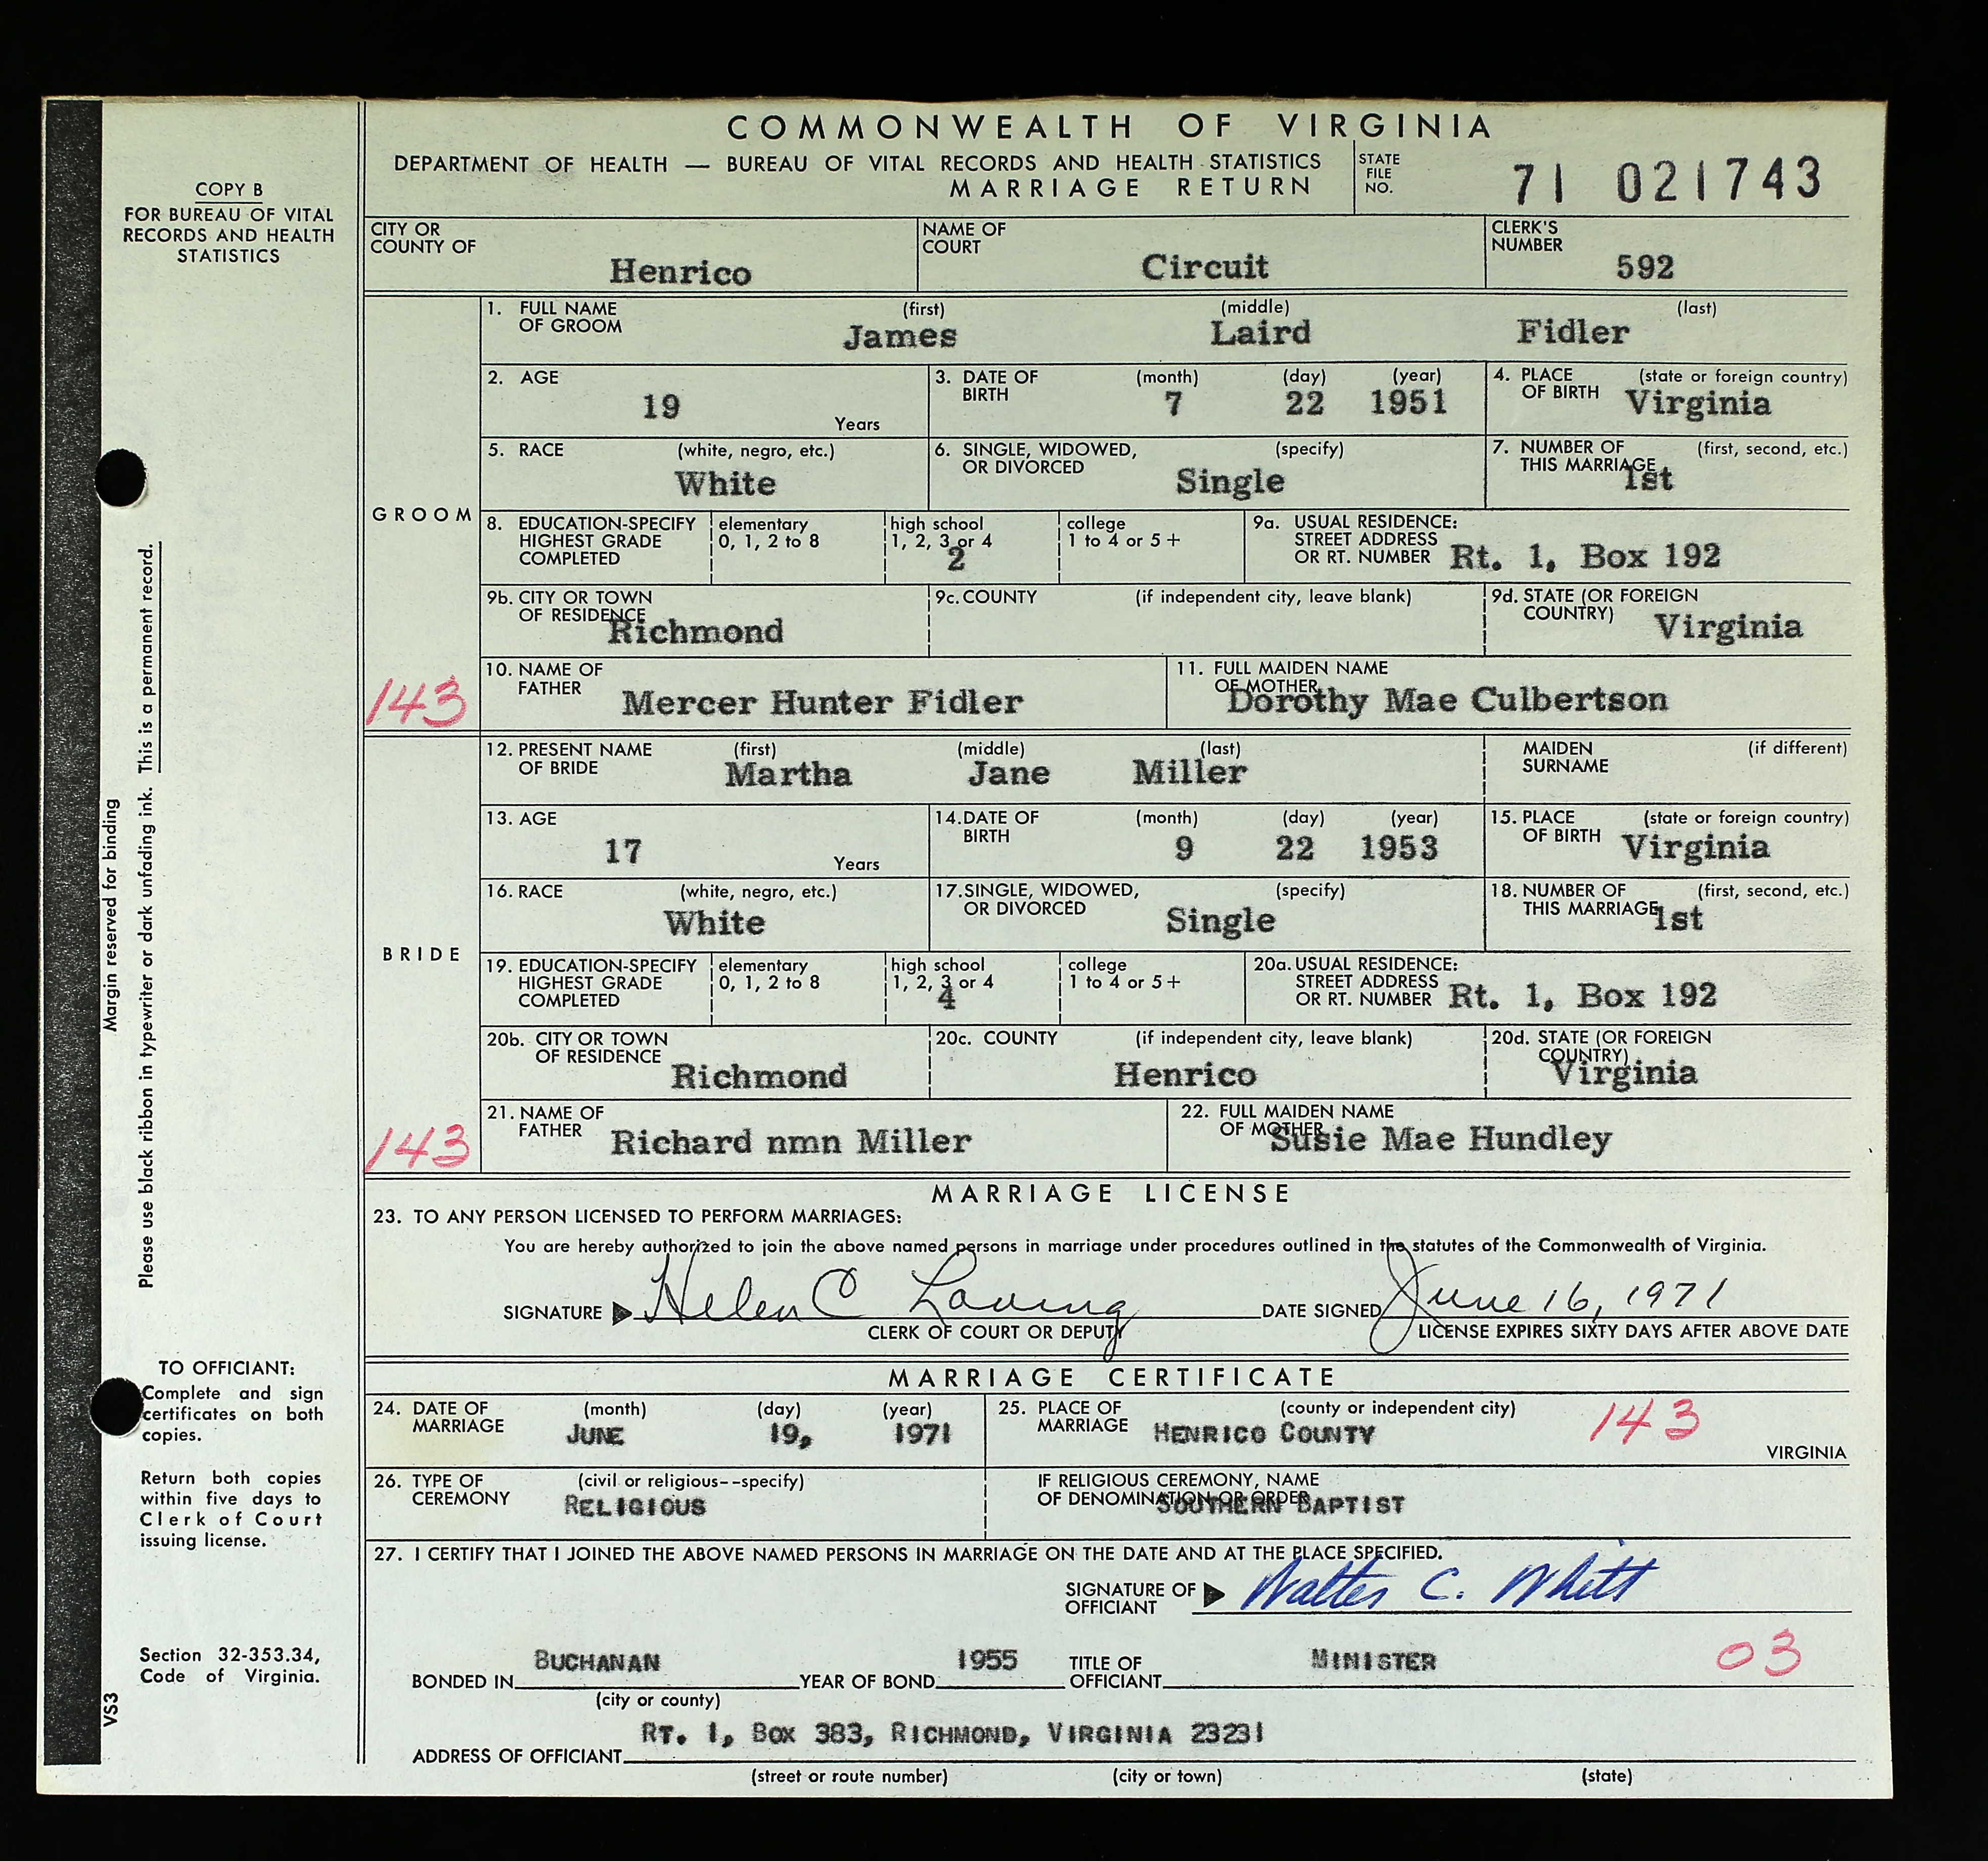 COMMONWEALTH OF VIRGINIA
DEPARTMENT OF HEALTH — BUREAU OF VITAL RECORDS AND HEALTH STATISTICS
MARRIAGE RETURN
STATE FILE NO. 71 021743
COPY B
FOR BUREAU OF VITAL
RECORDS AND HEALTH
STATISTICS
CITY OR COUNTY OF Henrico
NAME OF COURT Circuit
CLERK'S NUMBER 592
GROOM
143
1. FULL NAME OF GROOM (first) James (middle) Laird (last) Fidler
2. AGE 19 Years
3. DATE OF BIRTH (month) 7 (day) 22 (year) 1951
4. PLACE OF BIRTH (state or foreign country) Virginia
5. RACE (white, negro, etc.) White
6. SINGLE, WIDOWED, OR DIVORCED (specify) Single
7. NUMBER OF THIS MARRIAGE (first, second, etc.) 1st
8. EDUCATION-SPECIFY HIGHEST GRADE COMPLETED elementary 0, 1, 2 to 8 high school 1, 2, 3 or 4 2 college 1 to 4 or 5+
9a. USUAL RESIDENCE: STREET ADDRESS OR RT. NUMBER Rt. 1, Box 192
9b. CITY OR TOWN OF RESIDENCE Richmond
9c. COUNTY (if independent city, leave blank)
9d. STATE (OR FOREIGN COUNTRY) Virginia
10. NAME OF FATHER Mercer Hunter Fidler
11. FULL MAIDEN NAME OF MOTHER Dorothy Mae Culbertson
BRIDE
143
12. PRESENT NAME OF BRIDE (first) Martha (middle) Jane (last) Miller
MAIDEN SURNAME (if different)
13. AGE 17 Years
14. DATE OF BIRTH (month) 9 (day) 22 (year) 1953
15. PLACE OF BIRTH (state or foreign country) Virginia
16. RACE (white, negro, etc.) White
17. SINGLE, WIDOWED, OR DIVORCED (specify) Single
18. NUMBER OF THIS MARRIAGE (first, second, etc.) 1st
19. EDUCATION-SPECIFY HIGHEST GRADE COMPLETED elementary 0, 1, 2 to 8 high school 1, 2, 3 or 4 4 college 1 to 4 or 5+
20a. USUAL RESIDENCE: STREET ADDRESS OR RT. NUMBER Rt. 1, Box 192
20b. CITY OR TOWN OF RESIDENCE Richmond
20c. COUNTY (if independent city, leave blank) Henrico
20d. STATE (OR FOREIGN COUNTRY) Virginia
21. NAME OF FATHER Richard nmn Miller
22. FULL MAIDEN NAME OF MOTHER Susie Mae Hundley
MARRIAGE LICENSE
23. TO ANY PERSON LICENSED TO PERFORM MARRIAGES:
You are hereby authorized to join the above named persons in marriage under procedures outlined in the statutes of the Commonwealth of Virginia.
SIGNATURE Helen C Loving DATE SIGNED June 16, 1971
CLERK OF COURT OR DEPUTY LICENSE EXPIRES SIXTY DAYS AFTER ABOVE DATE
MARRIAGE CERTIFICATE
24. DATE OF MARRIAGE (month) JUNE (day) 19, (year) 1971
25. PLACE OF MARRIAGE (county or independent city) HENRICO COUNTY 143 VIRGINIA
26. TYPE OF CEREMONY (civil or religious--specify) RELIGIOUS
IF RELIGIOUS CEREMONY, NAME OF DENOMINATION OR ORDER SOUTHERN BAPTIST
27. I CERTIFY THAT I JOINED THE ABOVE NAMED PERSONS IN MARRIAGE ON THE DATE AND AT THE PLACE SPECIFIED.
SIGNATURE OF OFFICIANT Walter C. Whitt
BONDED IN BUCHANAN YEAR OF BOND 1955 TITLE OF OFFICIANT MINISTER 03
(city or county)
ADDRESS OF OFFICIANT RT. 1, BOX 383, RICHMOND, VIRGINIA 23231
(street or route number) (city or town) (state)
Margin reserved for binding
Please use black ribbon in typewriter or dark unfading ink. This is a permanent record.
TO OFFICIANT:
Complete and sign
certificates on both
copies.
Return both copies
within five days to
Clerk of Court
issuing license.
Section 32-353.34,
Code of Virginia.
VS3